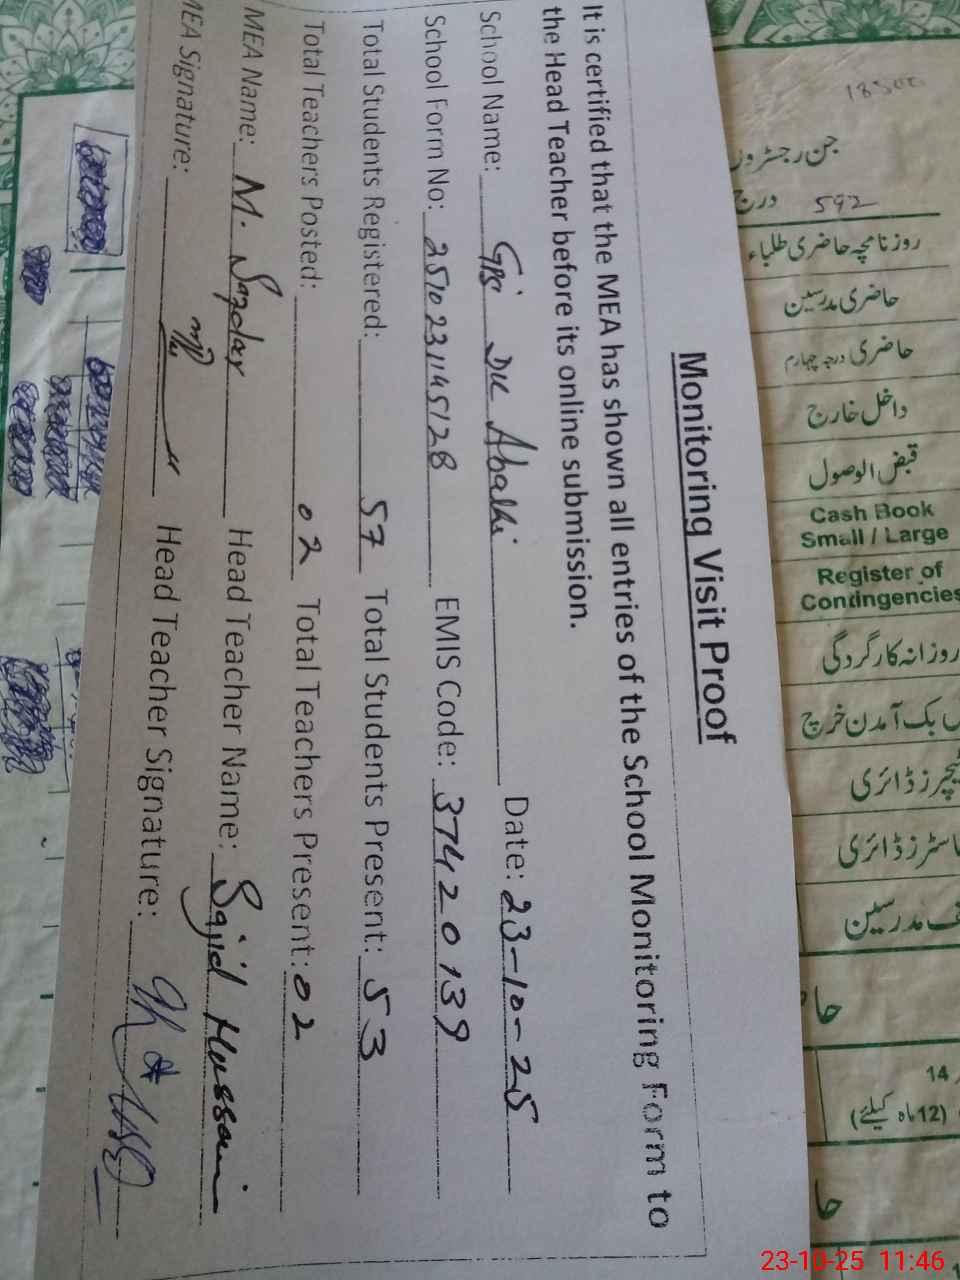 Monitoring Visit Proof
It is certified that the MEA has shown all entries of the School Monitoring Form to
the Head Teacher before its online submission.
School Name: GPS DK Abalhi Date: 23-10-25
School Form No: 2510231145128 EMIS Code: 37420139
Total Students Registered: 57 Total Students Present: 53
Total Teachers Posted: 02 Total Teachers Present: 02
MEA Name: M. Safdar Head Teacher Name: Sajid Hussain
MEA Signature: Head Teacher Signature:
جن رجسٹروں
592 درج
روزنامچہ حاضری طلباء
حاضری مدرسین
حاضری درجہ چہارم
داخل خارج
قبض الوصول
Cash Book
Small / Large
Register of
Contingencies
روزانہ کارگردگی
بک آمدن خرچ
ٹیچرز ڈائری
ماسٹرز ڈائری
مدرسین
14
(12 ماہ کیلئے)
23-10-25 11:46